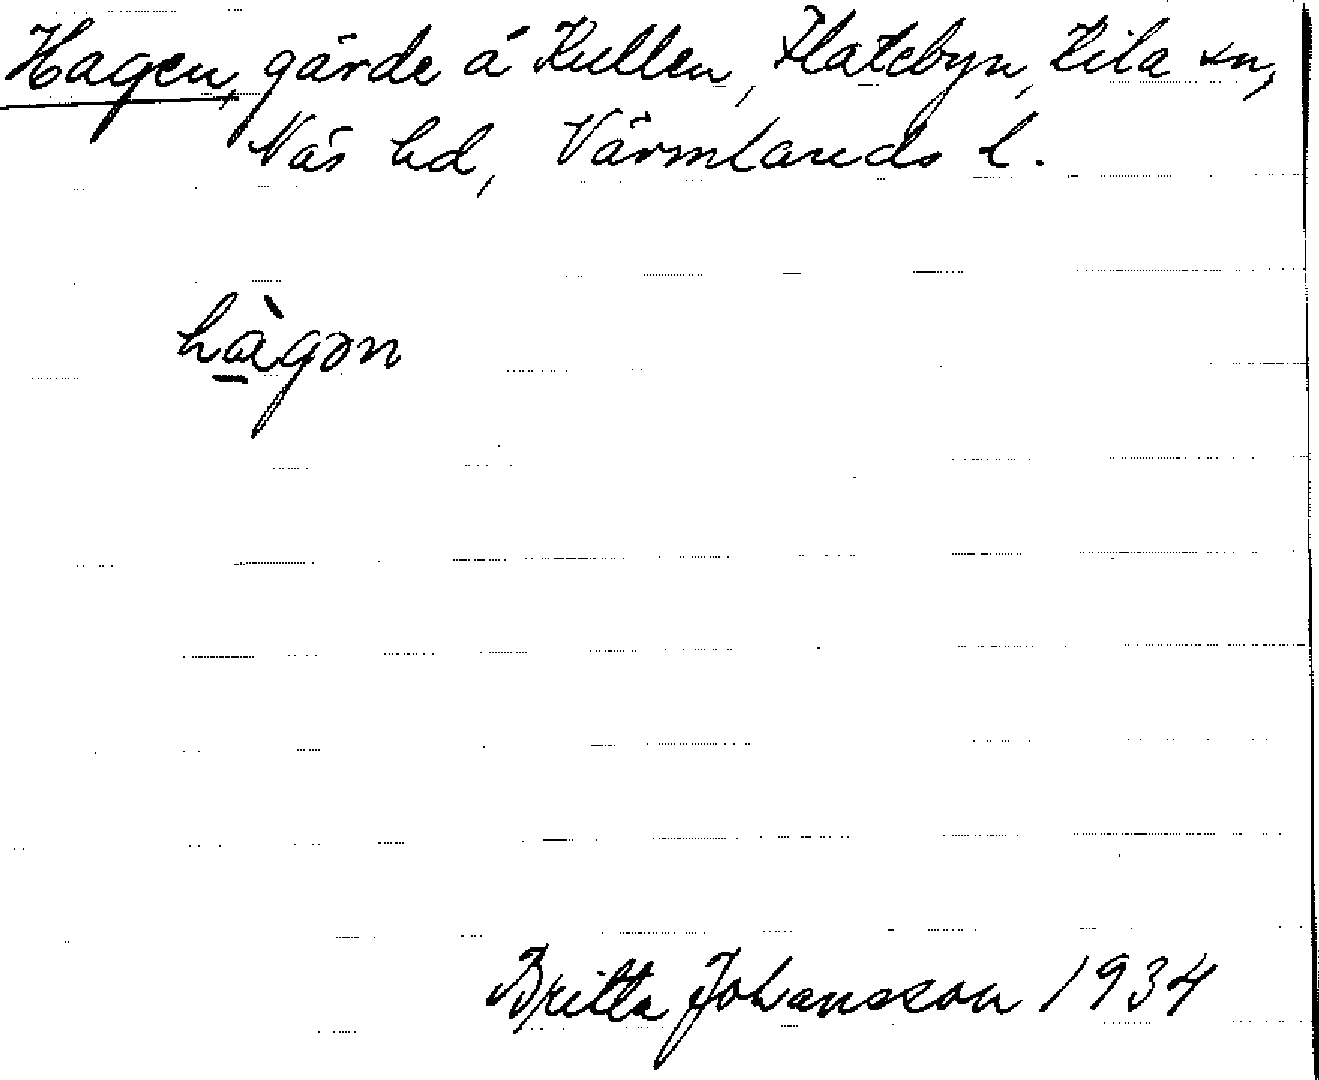 Hagen, gärde å Kullen, Flatebyn, Kila sn,
Näs hd, Värmlands l.
hàgən
Britta Johansson 1934